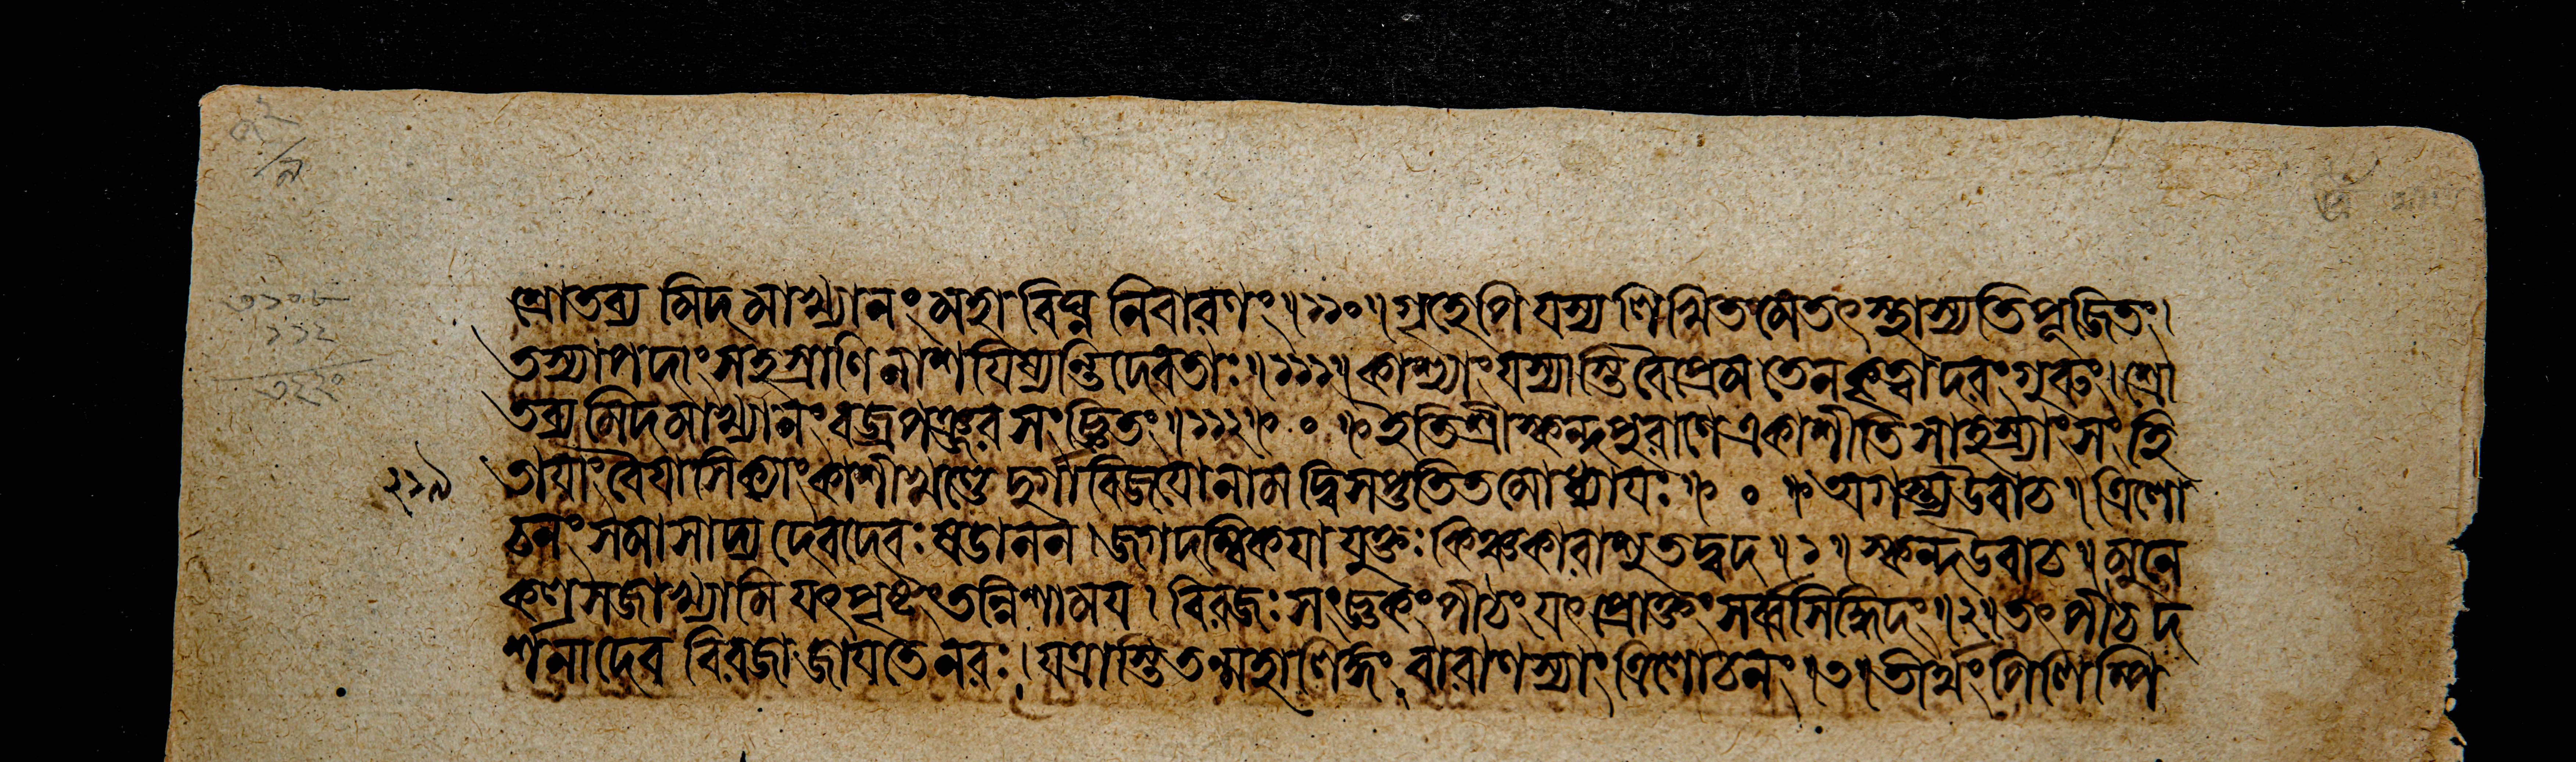 শ্রোতব্য মিদমাখ্যানং মহা বিঘ্ন নিবারণং॥১১০॥গৃহেপি যস্য লিখিতমেতৎস্থাস্যতি পূজিতং।
তস্যাপদাং সহস্রাণি নাশযিষ্যন্তি দেবতাঃ॥১১১॥কাশ্যাং যস্যাস্তি বৈ প্রেম তেন কৃত্বাদরং গুরুং।শ্রো
তব্য মিদমাখ্যানং বজ্রপঞ্জর সংজ্ঞিতং॥১১২॥ ০ ॥ইতি শ্রীস্কন্দপুরাণে একাশীতি সাহস্র্যাং সংহি
২১৯ তাযাং বৈযাসিক্যাং কাশীখণ্ডে দুর্গা বিজযো নাম দ্বিসপ্ততিতমোধ্যাযঃ॥ ০ ॥অগস্ত্য উবাচ॥ত্রিলো
চনং সমাসাদ্য দেবদেবঃ ষডানন।জগদম্বিকযা যুক্তঃ কিঞ্চকারাশু তদ্বদ॥১॥স্কন্দ উবাচ॥মুনে
কলসজাখ্যামি যৎপৃষ্টং তন্নিশাময। বিরজঃ সংজ্ঞকং পীঠং যৎ প্রোক্তং সর্ব্বসিদ্ধিদং॥২॥তৎ পীঠ দ
র্শনাদেব বিরজা জাযতে নরঃ।যত্রাস্তি তন্মহালিঙ্গং বারাণস্যাং ত্রিলোচনং॥৩॥তীর্থং পিলিপ্পি